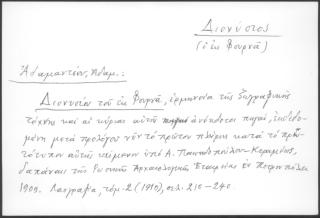 Διονύσιος
(ὁ ἐκ Φουρνᾶ)
Ἀδαμαντίου, Ἀδαμ.:
Διονυσίου τοῦ ἐκ Φουρνᾶ, ἑρμηνεία τῆς ζωγραφικῆς
τέχνης καὶ αἱ κύριαι αὐτῆς ἀνέκδοτοι πηγαί, ἐκδιδο-
μένη μετὰ προλόγου νῦν τὸ πρῶτον πλήρης κατὰ τὸ πρω-
τότυπον αὐτῆς κείμενον ὑπὸ Α. Παπαδοπούλου-Κεραμέως,
δαπάναις τῆς Ρωσικῆς Ἀρχαιολογικῆς Ἑταιρείας ἐν Πετρουπόλει
1909. Λαογραφία, τόμ. 2 (1910), σελ. 210-240.